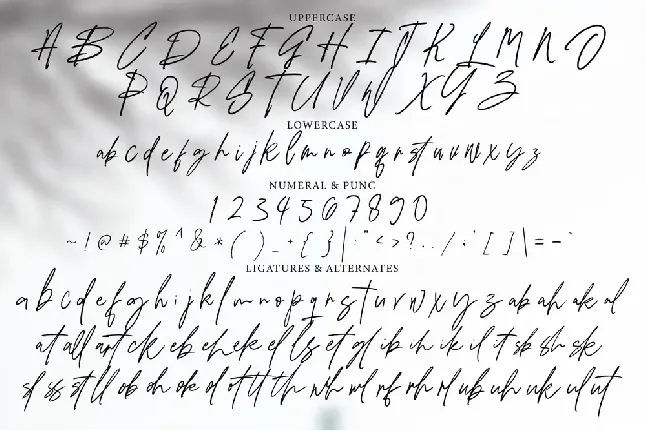 UPPERCASE
A B C D E F G H I J K L M N O
P Q R S T U V W X Y Z
LOWERCASE
a b c d e f g h i j k l m n o p q r s t u v w x y z
NUMERAL & PUNC
1 2 3 4 5 6 7 8 9 0
~ ! @ # $ % ^ & * ( ) _ + { } | : " < > ? . . / ; ' [ ] \ = - `
LIGATURES & ALTERNATES
a b c d e f g h i j k l m n o p q r s t u v w x y z ab ah ak al
at all art ck eb eh ek el ls et gl ib ih ik il it sb sh sk
sl ss st ll ob oh ok ol ot tt th wh wl rf rh rl ub uh uk ul ut